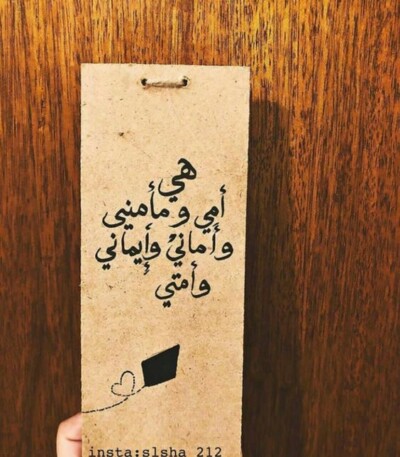 هي
أمي ومأمنيي
وأمانيْ وأيماني
وأمتي
insta:slsha 212